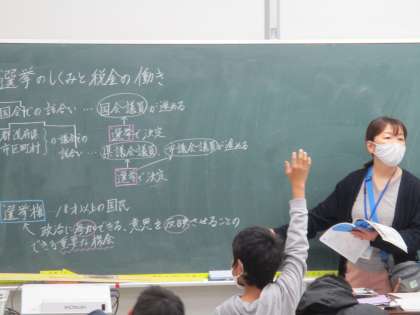 選挙のしくみと税金の働き
国会での話合い…国会議員が進める
選挙で決定
都道府県
市区町村
の議会での
話合い…県議会議員、市議会議員が進める
選挙で決定
選挙権 18才以上の国民
政治に参加できる、意思を反映させることの
できる重要な